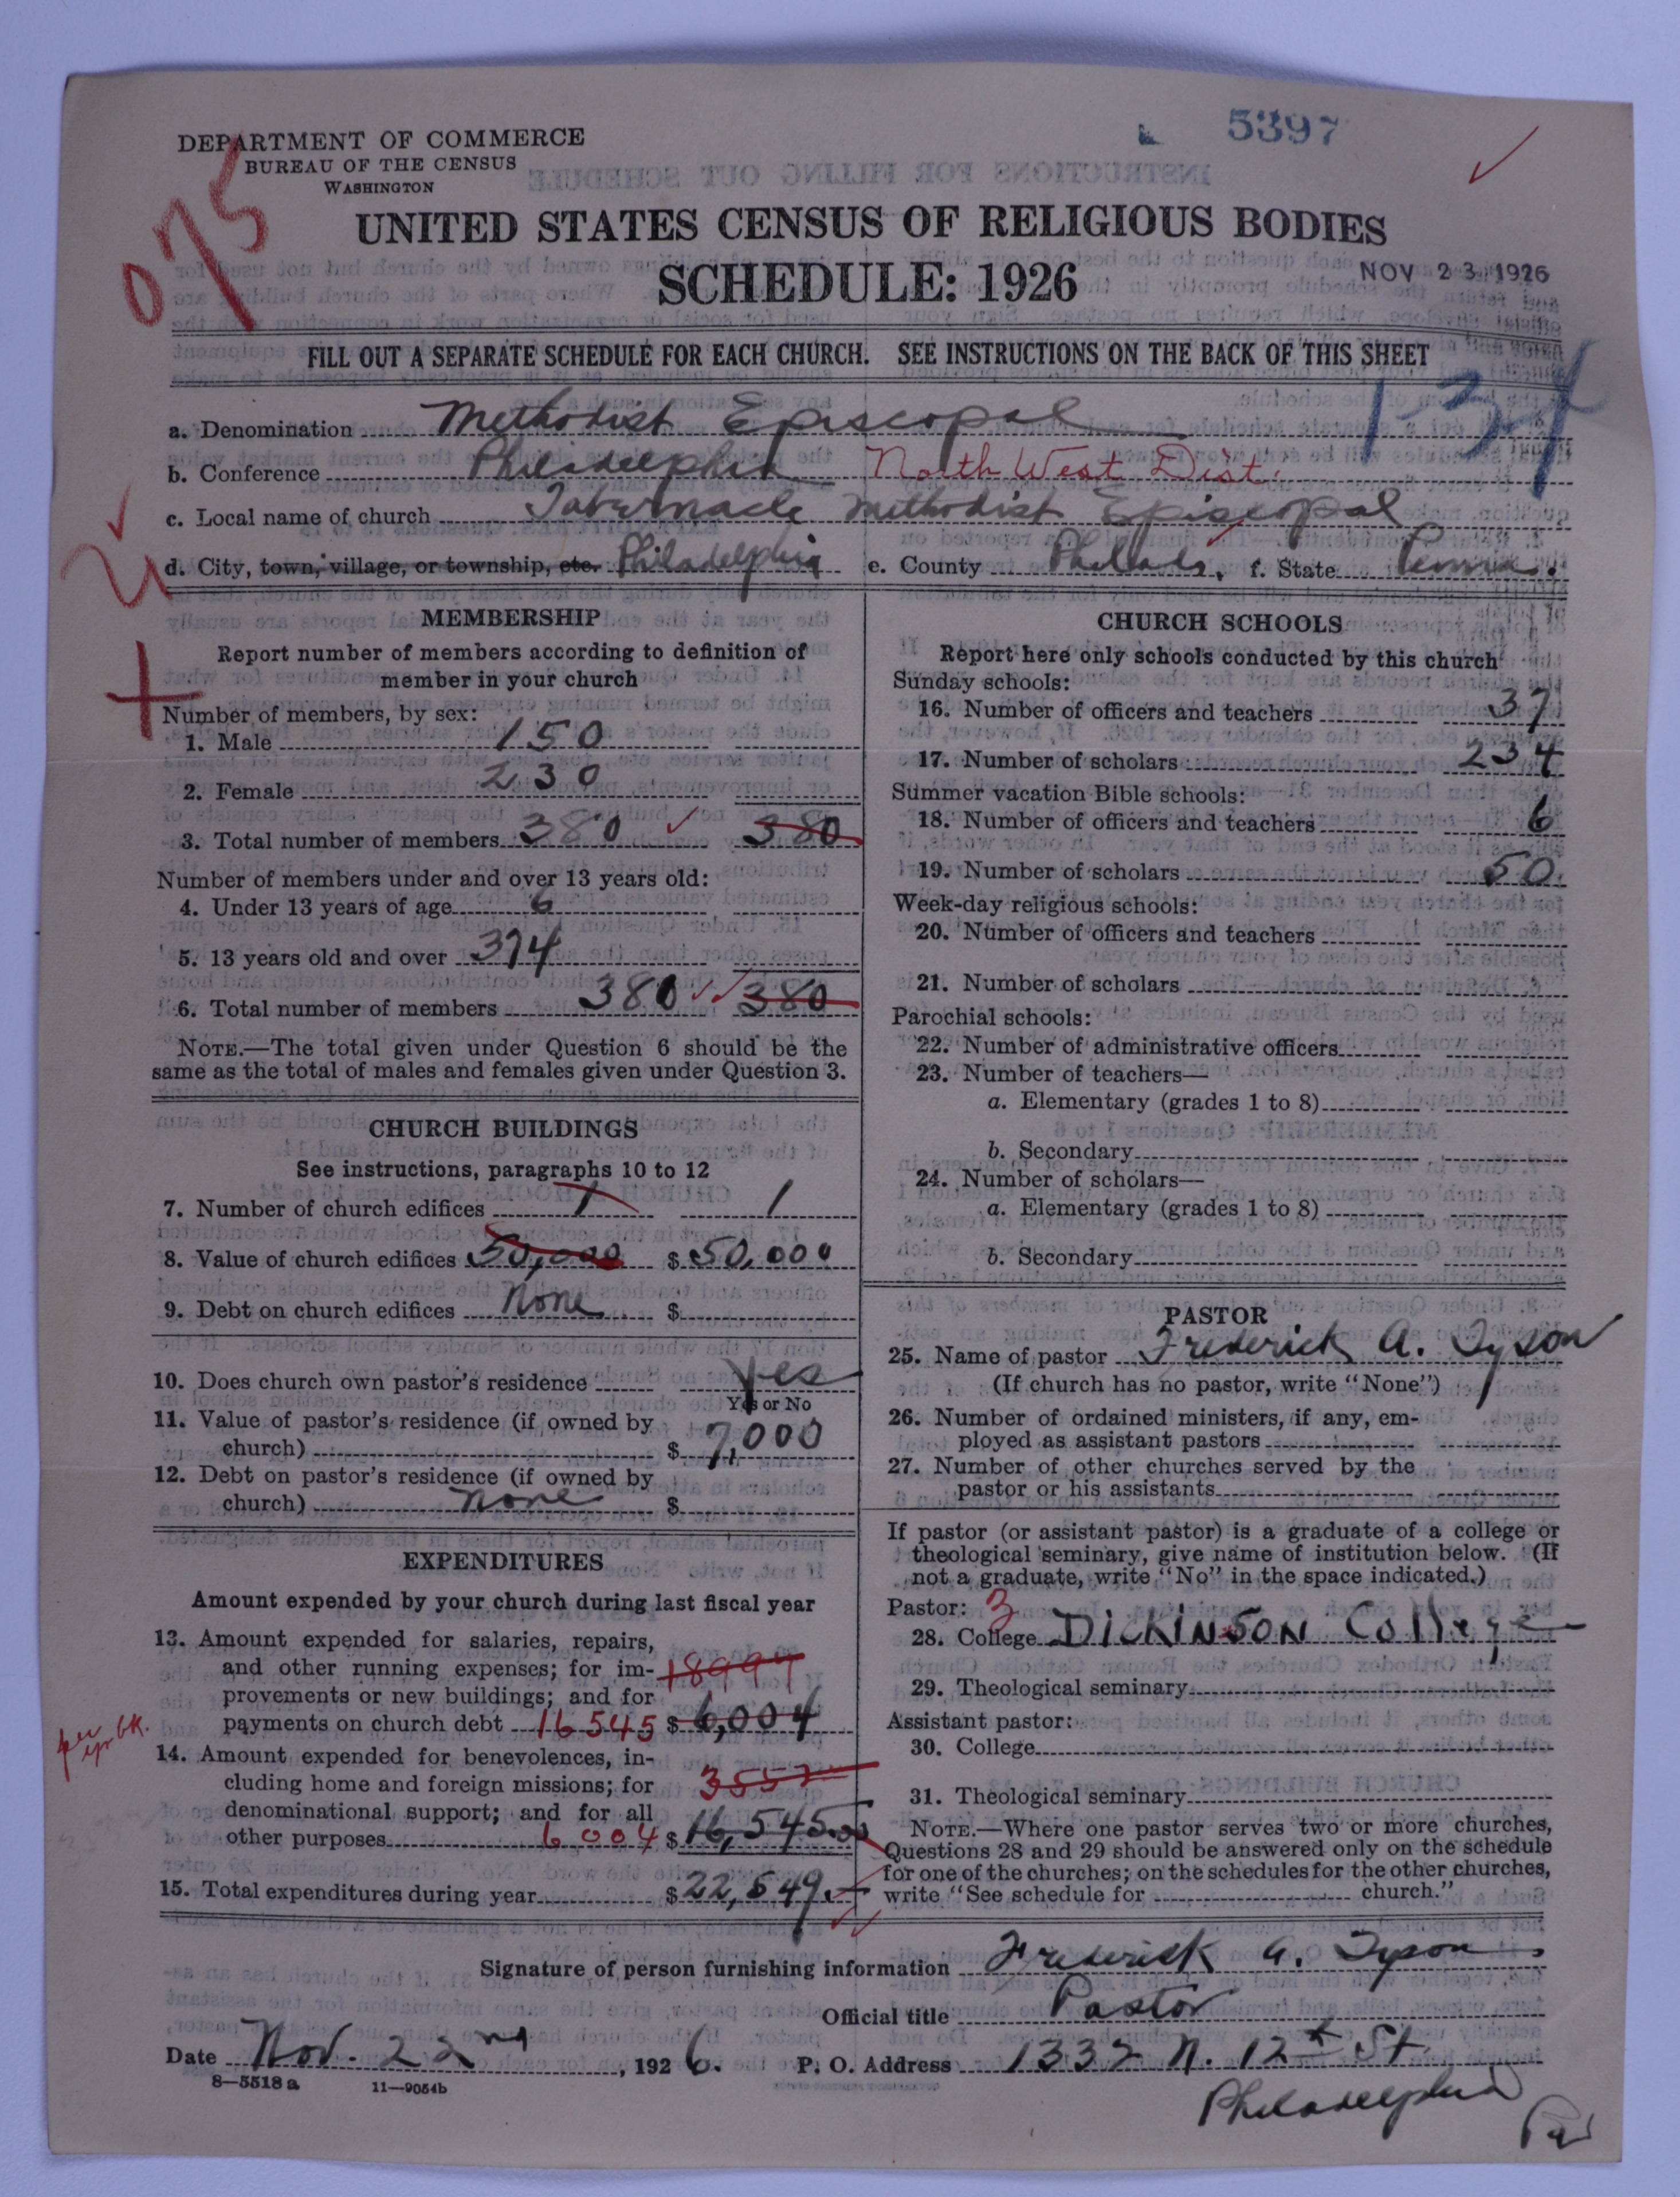 5397
DEPARTMENT OF COMMERCE
BUREAU OF THE CENSUS
WASHINGTON
075
UNITED STATES CENSUS OF RELIGIOUS BODIES
SCHEDULE: 1926
NOV 23 1926
FILL OUT A SEPARATE SCHEDULE FOR EACH CHURCH. SEE INSTRUCTIONS ON THE BACK OF THIS SHEET
134
a. Denomination Methodist Episcopal
b. Conference Philadelphia North West Dist.
c. Local name of church Tabernacle Methodist Episcopal
d. City, town, village, or township, etc. Philadelphia e. County Philada, f. State Penna.
MEMBERSHIP
Report number of members according to definition of
member in your church
Number of members, by sex:
1. Male 150
2. Female 230
3. Total number of members 380 380
Number of members under and over 13 years old:
4. Under 13 years of age 6
5. 13 years old and over 374
6. Total number of members 380 380
NOTE.—The total given under Question 6 should be the
same as the total of males and females given under Question 3.
CHURCH BUILDINGS
See instructions, paragraphs 10 to 12
7. Number of church edifices 1 1
8. Value of church edifices 50,000 $ 50,000
9. Debt on church edifices None $
10. Does church own pastor's residence Yes
Yes or No
11. Value of pastor's residence (if owned by
church) $ 7,000
12. Debt on pastor's residence (if owned by
church) none $
EXPENDITURES
Amount expended by your church during last fiscal year
13. Amount expended for salaries, repairs,
and other running expenses; for im- 18997
provements or new buildings; and for
payments on church debt 16545 $ 6,004
14. Amount expended for benevolences, in-
cluding home and foreign missions; for 3552
denominational support; and for all
other purposes 6004 $ 16,545.00
15. Total expenditures during year $ 22,549.—
per yr bk.
CHURCH SCHOOLS
Report here only schools conducted by this church
Sunday schools:
16. Number of officers and teachers 37
17. Number of scholars 234
Summer vacation Bible schools:
18. Number of officers and teachers 6
19. Number of scholars 50
Week-day religious schools:
20. Number of officers and teachers
21. Number of scholars
Parochial schools:
22. Number of administrative officers
23. Number of teachers—
a. Elementary (grades 1 to 8)
b. Secondary
24. Number of scholars—
a. Elementary (grades 1 to 8)
b. Secondary
PASTOR
25. Name of pastor Frederick A. Tyson
(If church has no pastor, write "None")
26. Number of ordained ministers, if any, em-
ployed as assistant pastors
27. Number of other churches served by the
pastor or his assistants
If pastor (or assistant pastor) is a graduate of a college or
theological seminary, give name of institution below. (If
not a graduate, write "No" in the space indicated.)
Pastor: 3
28. College DICKINSON College
29. Theological seminary
Assistant pastor:
30. College
31. Theological seminary
NOTE.—Where one pastor serves two or more churches,
Questions 28 and 29 should be answered only on the schedule
for one of the churches; on the schedules for the other churches,
write "See schedule for church."
Signature of person furnishing information Frederick A. Tyson
Official title Pastor
Date Nov. 22nd, 1926. P. O. Address 1332 N. 12th St.
8—5518a 11—9054b
Philadelphia
Pa